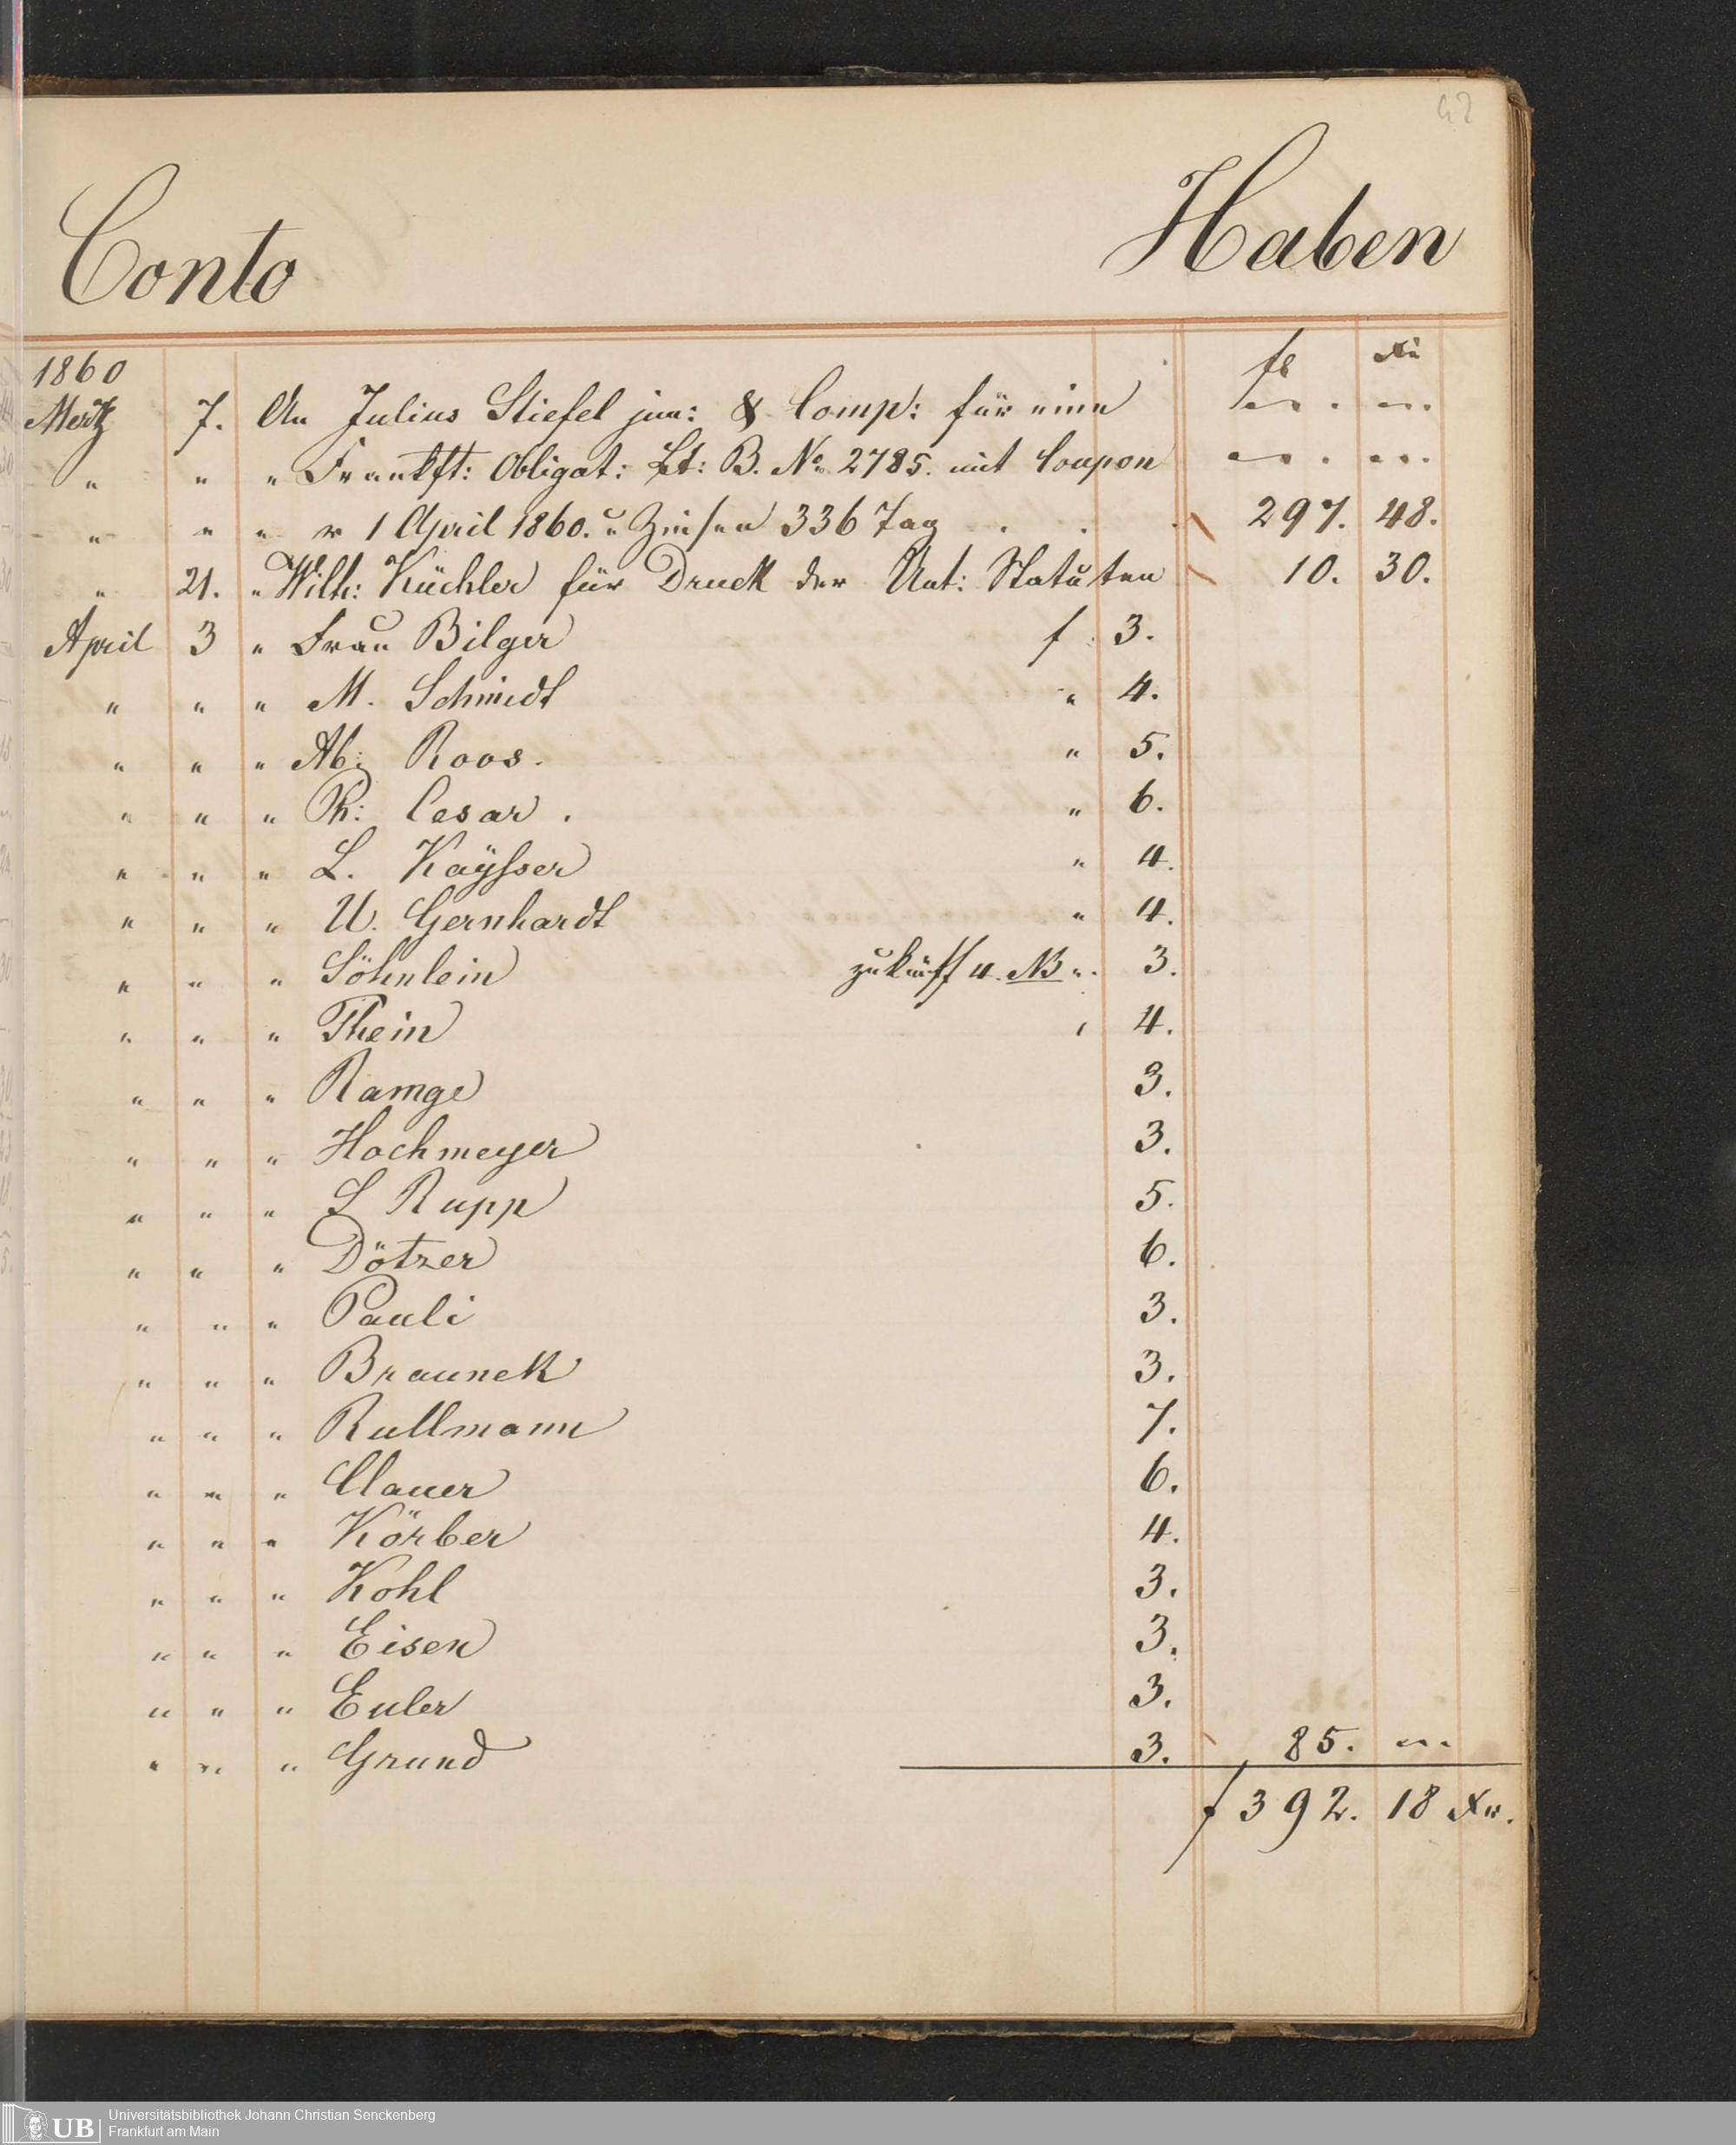 42
Conto Haben
1860 fl Xr
Mertz 7. An Julius Stiefel jun: & Comp: für eine " . " .
" " " Frankft: Obligat: Lt: B. No 2785. mit Coupon " . " .
" " " 1 April 1860. u Zinsen 336 Tag . . . 297. 48.
" 21. " Wilh: Küchler für Druck der Unt: Statuten 10. 30.
April 3 " Frau Bilger f 3.
" " " M. Schmidt " 4.
" " " Ab: Roos. " 5.
" " " Ph: Cesar. " 6.
" " " L. Kaÿsser " 4.
" " " W. Gernhardt " 4.
" " " Söhnlein zukünft 4. NB ". 3.
" " " Thein " 4.
" " " Ramge 3.
" " " Hochmeyer 3.
" " " L Rupp 5.
" " " Dötzer 6.
" " " Pauli 3.
" " " Braunek 3.
" " " Rullmann 7.
" " " Clauer 6.
" " " Körber 4.
" " " Kohl 3.
" " " Eisen 3.
" " " Euler 3.
" " " Grund 3. 85. " .
f 392. 18 Xr.
UB
Universitätsbibliothek Johann Christian Senckenberg
Frankfurt am Main